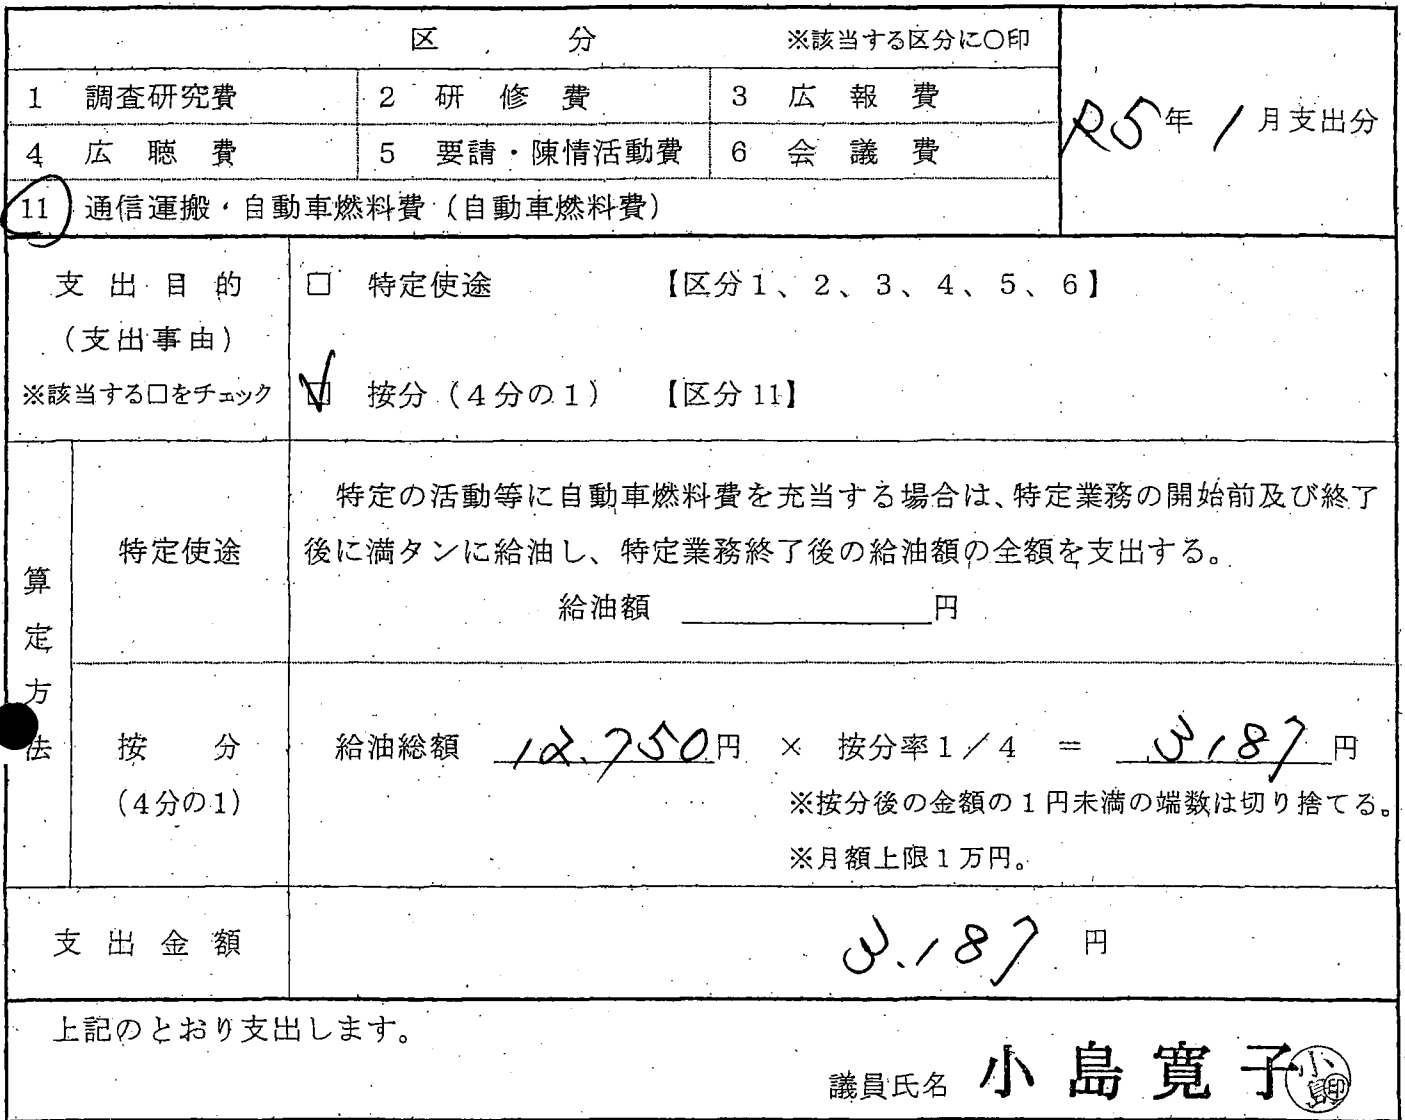 区分 ※該当する区分に〇印
1 調査研究費 2 研修費 3 広報費
R5年 1月支出分
4 広聴費 5 要請・陳情活動費 6 会議費
11 通信運搬・自動車燃料費（自動車燃料費）
支出目的 □ 特定使途 【区分1、2、3、4、5、6】
（支出事由）
※該当する□をチェック ☑ 按分（4分の1） 【区分11】
算定方法
特定使途
特定の活動等に自動車燃料費を充当する場合は、特定業務の開始前及び終了
後に満タンに給油し、特定業務終了後の給油額の全額を支出する。
給油額 ＿＿＿＿円
按分 給油総額 12.750円 × 按分率1／4 ＝ 3187円
（4分の1） ※按分後の金額の1円未満の端数は切り捨てる。
※月額上限1万円。
支出金額 3.187 円
上記のとおり支出します。
議員氏名 小島寛子 小島印